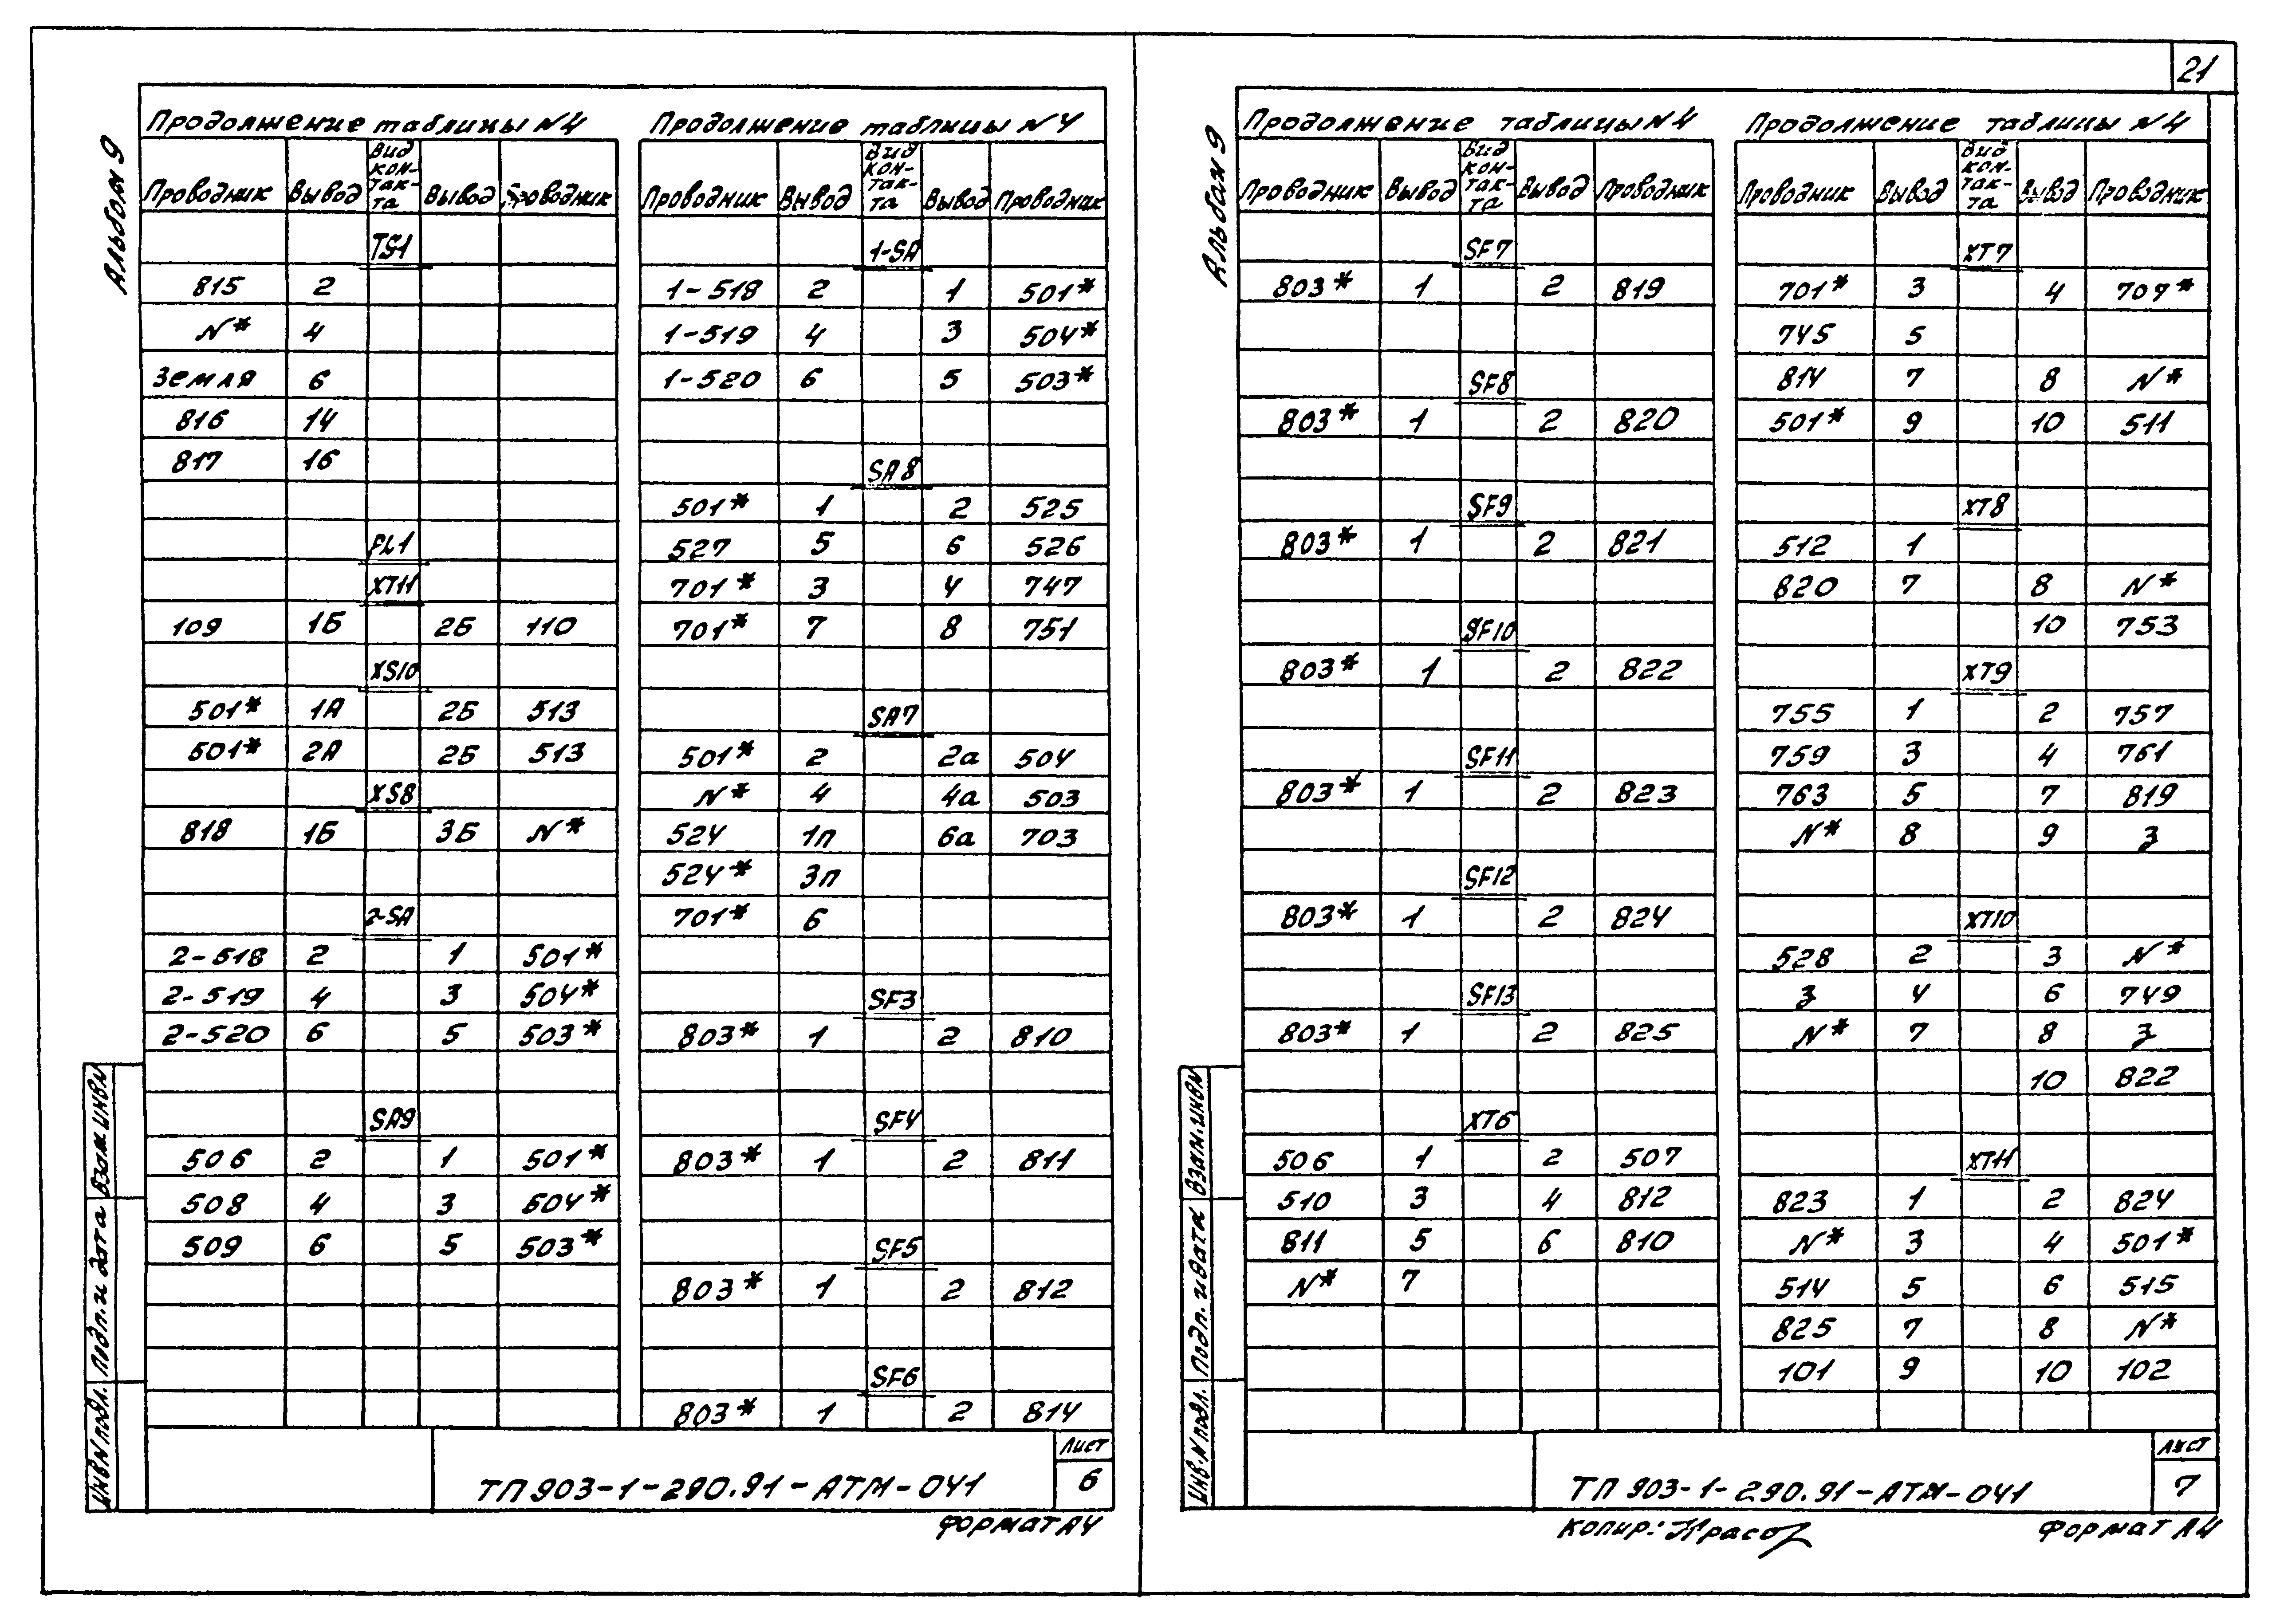 21
Альбом 9
Продолжение таблицы N4
Проводник Вывод Вид кон-так-та Вывод Проводник
TS1
815 2
N* 4
Земля 6
816 14
817 16
XT11
109 1Б 2Б 110
XS10
501* 1А 2Б 513
501* 2А 2Б 513
XS8
818 1Б 3Б N*
2-SA
2-518 2 1 501*
2-519 4 3 504*
2-520 6 5 503*
SA9
506 2 1 501*
508 4 3 504*
509 6 5 503*
Продолжение таблицы N4
Проводник Вывод Вид кон-так-та Вывод Проводник
1-SA
1-518 2 1 501*
1-519 4 3 504*
1-520 6 5 503*
SA8
501* 1 2 525
527 5 6 526
701* 3 4 747
701* 7 8 751
SA7
501* 2 2а 504
N* 4 4а 503
524 1п 6а 703
524* 3п
701* 6
SF3
803* 1 2 810
SF4
803* 1 2 811
SF5
803* 1 2 812
SF6
803* 1 2 814
Инв.N подл. Подп. и дата Взам.инвN
ТП 903-1-290.91-АТМ-041
Лист
6
Формат А4
Альбом 9
Продолжение таблицы N4
Проводник Вывод Вид кон-так-та Вывод Проводник
SF7
803* 1 2 819
SF8
803* 1 2 820
SF9
803* 1 2 821
SF10
803* 1 2 822
SF11
803* 1 2 823
SF12
803* 1 2 824
SF13
803* 1 2 825
XT6
506 1 2 507
510 3 4 812
811 5 6 810
N* 7
Продолжение таблицы N4
Проводник Вывод Вид кон-так-та Вывод Проводник
XT7
701* 3 4 707*
745 5
814 7 8 N*
501* 9 10 511
XT8
512 1
820 7 8 N*
10 753
XT9
755 1 2 757
759 3 4 761
763 5 7 819
N* 8 9 З
XT10
528 2 3 N*
З 4 6 749
N* 7 8 З
10 822
XT11
823 1 2 824
N* 3 4 501*
514 5 6 515
825 7 8 N*
101 9 10 102
Инв.N подл. Подп. и дата Взам.инвN
ТП 903-1-290.91-АТМ-041
Лист
7
Копир.:
Формат А4